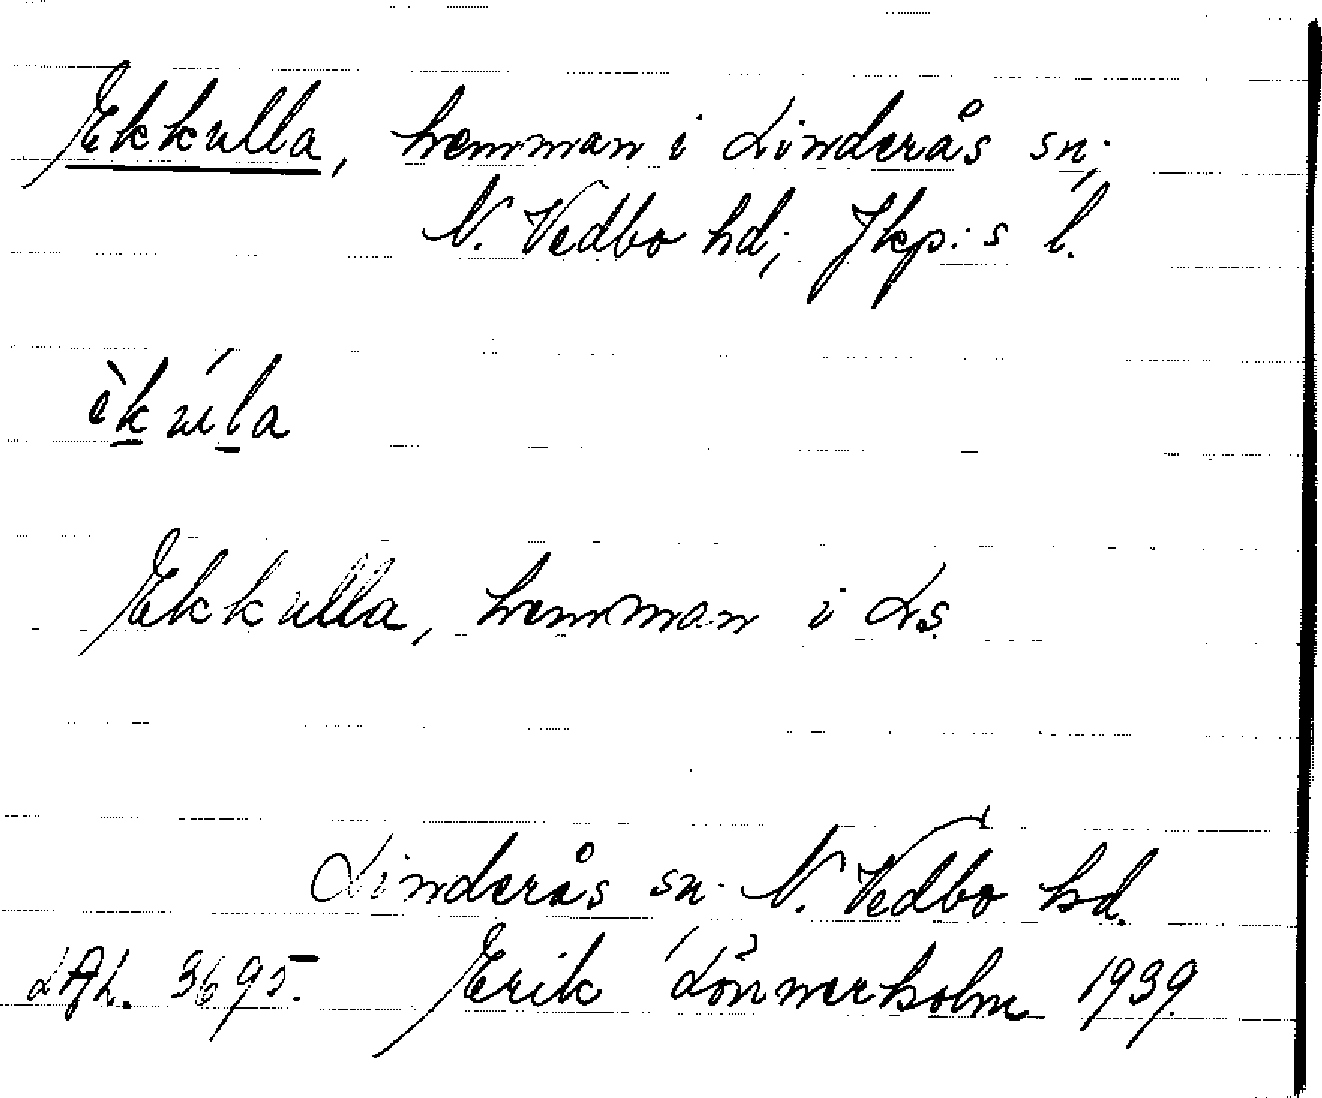 Ekkulla, hemman i Linderås sn;
N. Vedbo hd; Jkp:s l.
èkúla
Ekkulla, hemman i Ls
Linderås sn. N. Vedbo hd.
LAL. 3695. Erik Lönnerholm 1939.